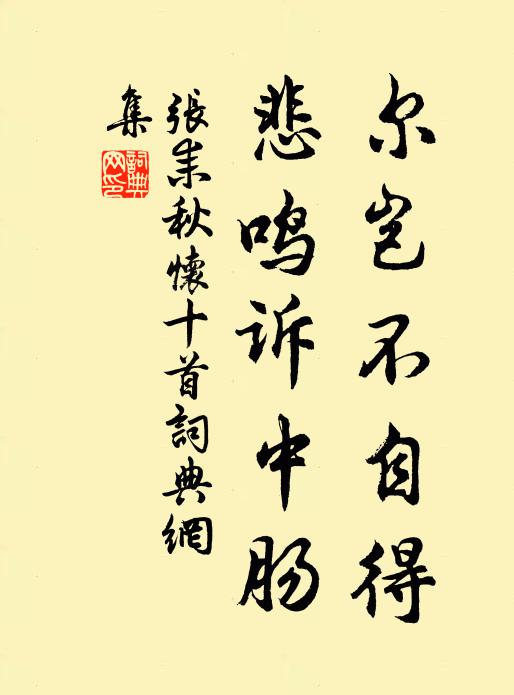 尔岂不自得
悲鸣诉中肠
張耒秋懷十首詞典網
集
詞典
网印